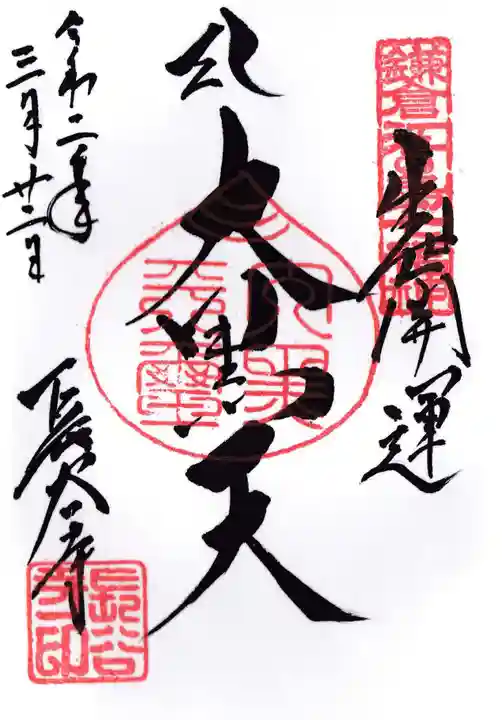 鎌倉
出世開運
大黒天
令和二年
三月廿二日
長谷寺
長谷寺印